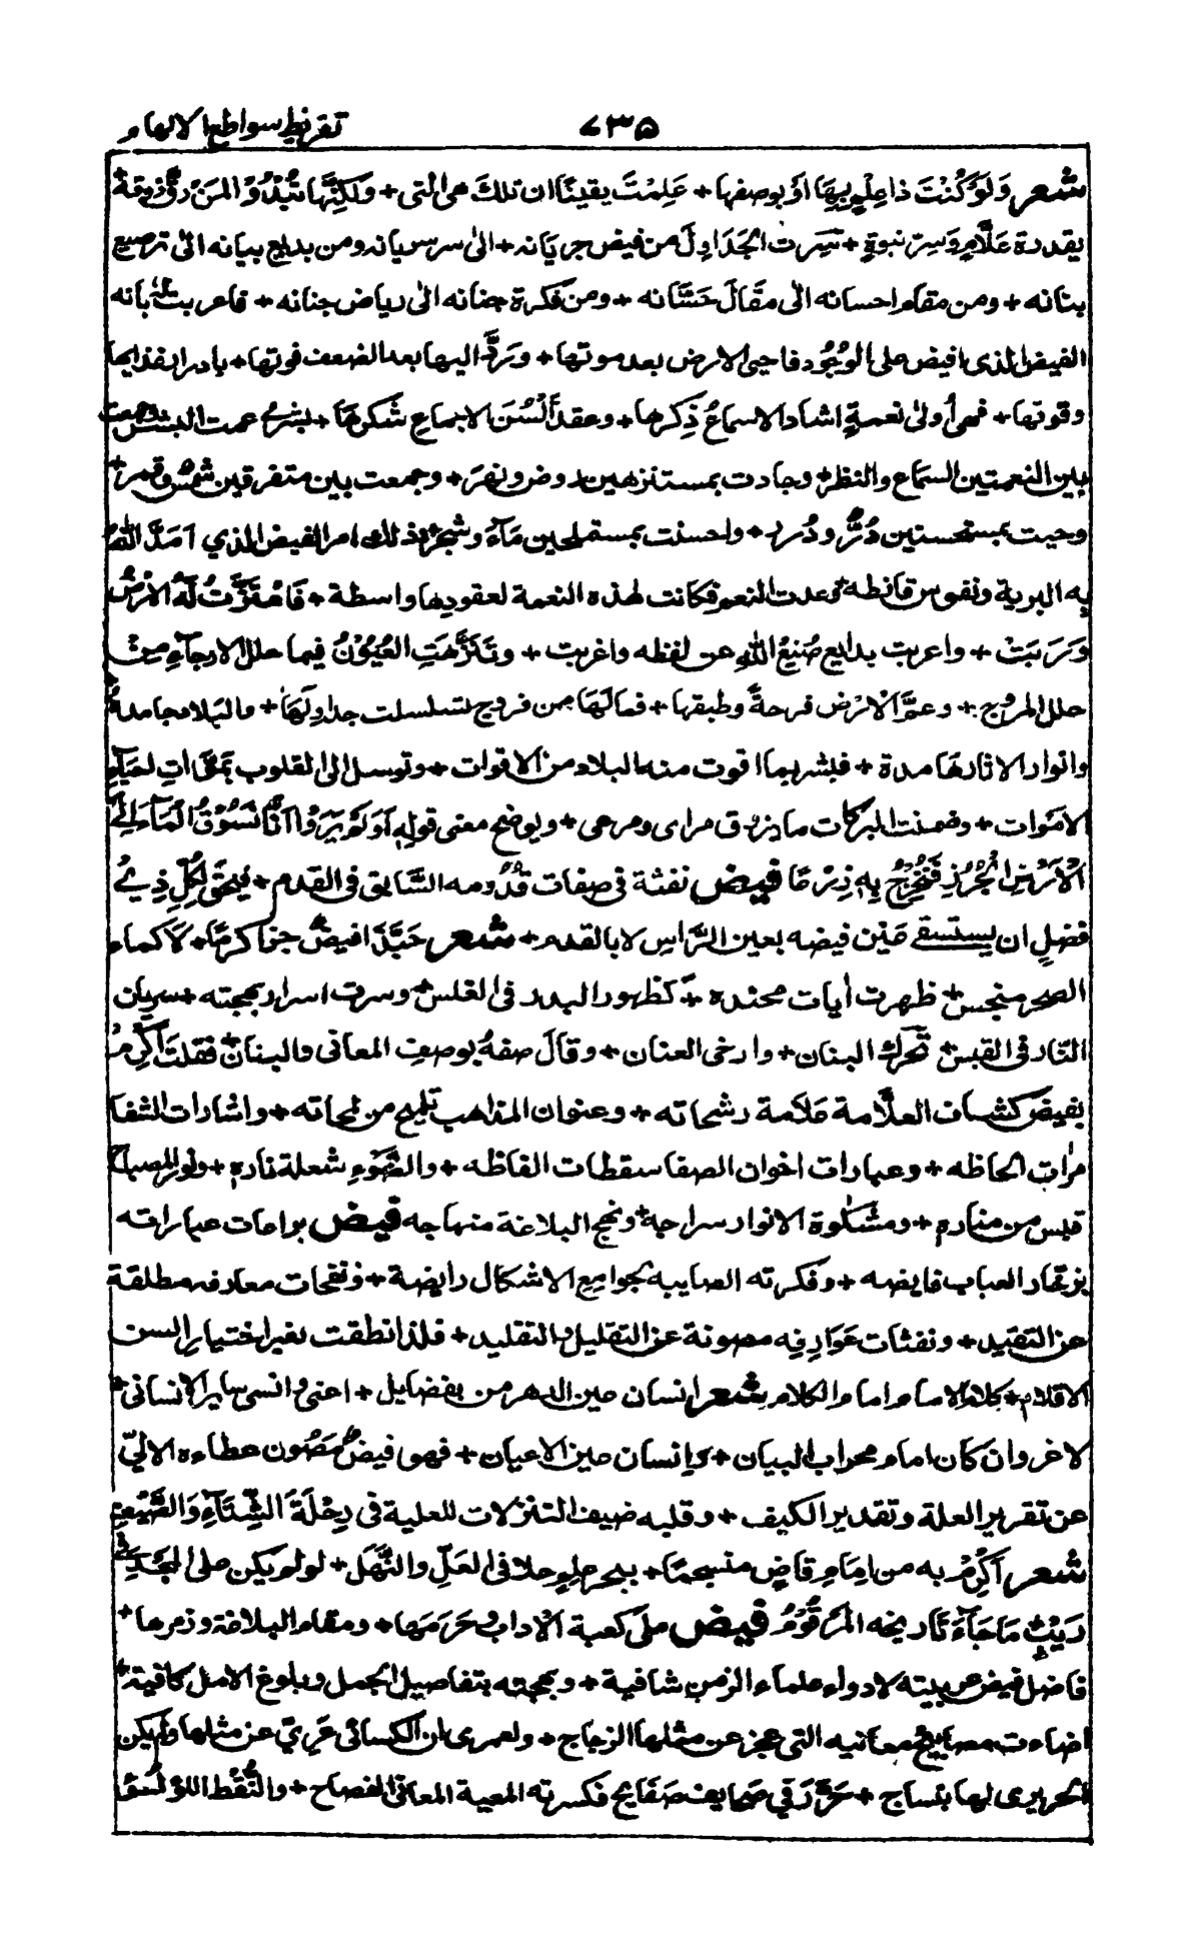 تقريظ سواطع الالهام
٧٣٥
شعر وَلَوْ كُنْتَ ذا عِلْمٍ بِهَا اَوْ بوصفها + عَلِمْتَ يقينًا ان تلكَ هى التى + وَلكِنَّها تَبْدُوْ لِمَنْ رَقَّ ذوقهٗ
بقدرة عَلَّامٍ وَسِرّ نبوةٍ + سَرت الجَدَاوِلَ من فيض جريَانه + الىٰ سرسريانه ومن بدايع بيانه الىٰ ترصيع
بنانه + ومن مقام احسانه الىٰ مقَال حَسَّانه + ومن فكرة جنانه الىٰ رياض جنانه + فاعربت بانه
الفيض الذى افيض على الوُجُود فاحيى الارض بعد موتها + وَرَدَّ اليها بعد الضعف قوتها + بادر لغذايها
وقوتها + فهى اُولىٰ نعمةٍ اشاد الاسماعُ ذِكرها + وعقد اَلْسُنَ الاجماعِ شكرهَا + عمت البشر
بين النعمتين السمَاع والنظر + وجادت بمستنزهين روض ونهرَ + وجمعت بين متفرقين شمسٌ وقمر +
وحيت بمستحسنين دُرٌّ ودُرر + واحسنت بمستملحين مَآءَ وشجر + فذلك امر الفيض الذي اَمَدَّ اللهُ
به البرية ونفوس قانطه + وعدت النعم فكانت لهذه النعمة لعقودها واسطة + فَاهْتَزَّتْ لَهُ الْاَرْضُ
وَرَبَتْ + واعربت بدايع صُنِعُ اللهِ عن لفظه واغربت + وتَنَزَّهَتِ العُيُوْنُ فيما حلل الارجآءِ مِنْ
حلل المروج + وعمَّ الارْض فرحةً وطبقها + فمالَهَا من فروج تسلسلت جداولَهَا + والبلاد جامدةٌ
وانوار الاثارهَا مدة + فبشر بما اقوت منه البلاد من الاقوات + وتوسل الى القلوب لحياةِ
الاموات + وضمنت البركات ما يزرق مراى ومرعى + ويوضح معنى قولِه اَوَ لَمْ يَرَوْا اَنَّا نَسُوْقُ الْمَآءَ اِلَى
الْاَرْضِ الْجُرُزِ فَنُخْرِجُ بِهٖ زَرْعًا فيض نفثة فى صفات قُدُومه السَّابق فى القدم + يَحق لِكُلّ ذِيْ
فضلٍ ان يستسقے عَيْن فيضه بعين الرَّاسِ لا بالقدم + شعر حَبَّذَا فيضٌ كرمًا + لَا كماء
الصخر منبجس + ظهرت اٰيات محتده + كظهور البدر فى الغلس + وسرت اسرار بهجته + سريان
النّار فى القبس + تحرك البنان + وارخى العنان + وقالَ صفهُ بوصف المعانى والبنان + فقلتَ اَكْرِمْ
بفيض كشاف العلَّامة عَلَامة رشحاته + وعنوان المذاهب تلمح من لمحاته + واشارات الشفا
مراٰت الحاظه + وعبارات اخوان الصفا سقطات الفاظه + والضَّوْءِ شعلة ناره + ونور المصباح
قبس من مناره + ومشكٰوة الانوار سراجه + ونهج البلاغة منهاجه فيض يراعات عباراته
العباب فايضه + وفكرته الصايبه بجوامِع الاشكال رايضة + ونفحات معارفه مطلقة
عن التقييد + ونفثات عَوَارِفِه مصونة عن التقليل والتقليد + فلذا نطقت بغير اختيار السن
الاقلام + كلام الامام امام الكلام شعر انسان عين الدهر من بفضايل + اعنى وانسى ساير الانسانى +
لاغر وان كان امام محراب البيان + وانسان عين الاعيان + فهو فيضٌ مَصُون عطاءه الاليّ
عن تقرير العلة وتقدير الكيف + وقلبه ضيف التنزلات للعلية فى رِحْلَةَ الشِّتَآءِ وَالصَّيْفِ
شعر اَكْرِمْ به من اِمَام قاضٍ منسجمًا + ببحر علم حلا فى العَلّ والنَّهَل + لو لم يكن على الجَدِّ فى
رَيْثٍ مَا جَآءَ تاريخه الْمَرْقُوْمُ فيض على كعبة الْاداب وحَرَمَها + ومقام البلاغة وزمرها +
فاضل فيض عربيته لادواء علماء الزمن شافية + وبهجته بتفاصيل الجمل وبلوغ الامل كافية +
اضاءت مصابيح معانيه التى عجز عن مثلها الزجاج + ولعمرى ان الكسائى عَرِيّ عن مثلها ولم يكن
الحريرى لها بنساج + حَرَّرَ فى صحايف صَفَايح فكرته المعية المعانى الفصاح + والنُّقْط اللؤلؤ